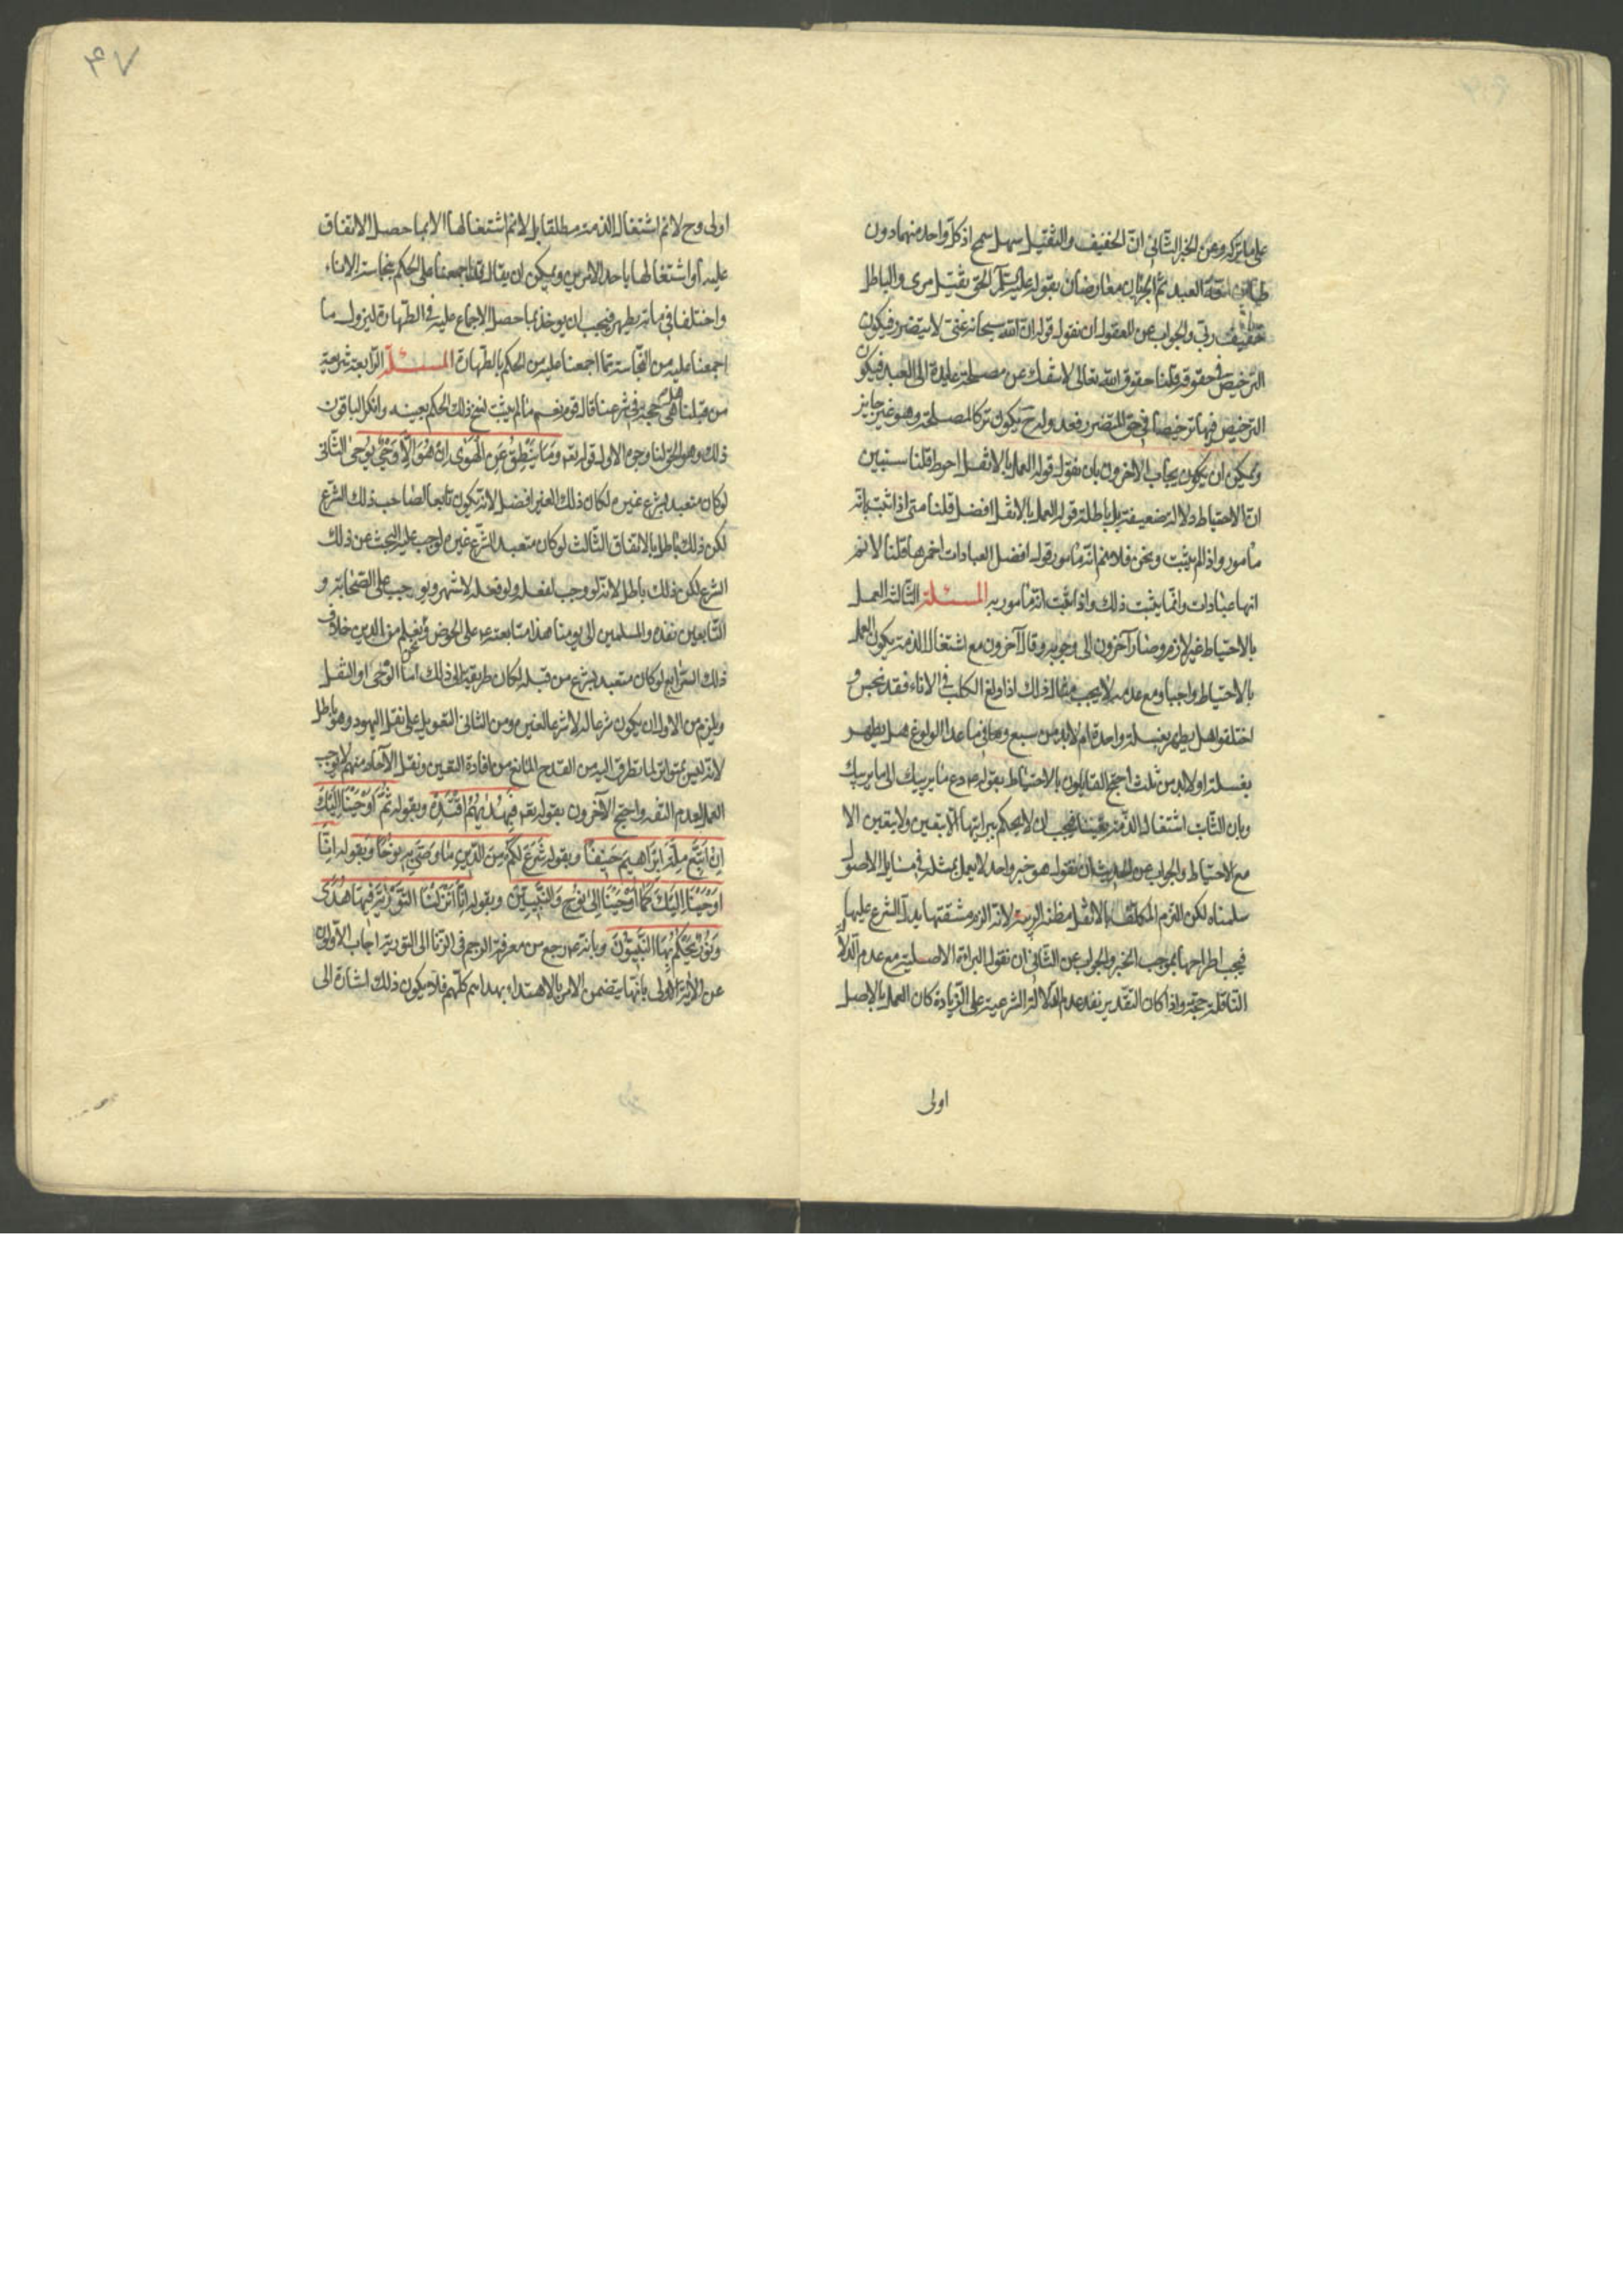 على ما تركه وعن الخبر الثاني انّ الخفيف والثقيل سهل سمح اذ كل واحد منهما دون
طاقة العبد ثم الخبران معارضان بقوله عليه السلم الحق ثقيل مرى والباطل
خفيف وبى والجواب عن المعقول ان نقول قوله ان الله سبحانه غنى لا يتضرر فيكون
الترخيص فى حقوقه قلنا حقوق الله تعالى لا تنفك عن مصلحة عايدة الى العبد فيكون
الترخيص فيها ترخيصا فى حق المتضرر بفعله ولرح يكون تركا لمصلحة وهو غير جايز
ويمكن ان يكون يجاب الاخرون بان نقول قوله العمل بالاثقل احوط قلنا سنبين
انّ الاحتياط دلالة ضعيفة بل باطلة قوله العمل بالاثقل افضل قلنا متى اذا ثبت بانه
مأمور واذا لم يثبت ونحن فلا نم انّه مأمور قوله افضل العبادات احمزها قلنا لا نم
انها عبادات وانّما يثبت ذلك واذا ثبت انّه مأمور به المسئلة الثالثة العمل
بالاحتياط غير لازم وصار آخرون الى وجوبه وقال آخرون مع اشتغال الذمة يكون العمل
بالاحتياط واجبا ومع عدمه لا يجب مثال ذلك اذا ولغ الكلب فى الاناء فقد نجس و
اختلفوا هل يطهر بغسلة واحدة ام لا بد من سبع وفيما عدا الولوغ هل يطهر
بغسلة او لا بد من ثلث احتج القايلون بالاحتياط بقوله ع دع ما يريبك الى ما لا يريبك
وبان الثابت اشتغال الذمة يقينا فيجب ان لا يحكم ببرائتها الا بيقين ولا يقين الا
مع الاحتياط والجواب عن الحديث ان نقول هو خبر واحد لا يعمل بمثله فى مسايل الاصول
سلمناه لكن الزم المكلف بالاثقل مظنة الريبة لانه الزم مشقة لم يدل الشرع عليها
فيجب اطراحها بموجب الخبر والجواب عن الثانى ان نقول البرائة الاصلية مع عدم الدلالة
الناقلة حجة واذا كان التقدير تقدير عدم الدلالة الشرعية على الزيادة كان العمل بالاصل
اولى
۴۷
اولى وح لا نم اشتغال الذمة مطلقا بل لا نم اشتغالها الا بما حصل الاتفاق
عليه او اشتغالها باحد الامرين ويمكن ان يقال قد اجمعنا على الحكم بنجاسة الاناء
واختلفنا فى ما به يطهر فيجب ان يوخذ بما حصل الاجماع عليه فى الطهارة ليزول ما
اجمعنا عليه من النجاسة بما اجمعنا عليه من الحكم بالطهارة المسئلة الرابعة شريعة
من قبلنا هل هى حجة فى شرعنا قال قوم نعم ما لم يثبت نسخ ذلك الحكم بعينه وانكر الباقون
ذلك وهو الحق لنا وجوه الاول قوله تعه وَمَا يَنْطِقُ عَنِ الْهَوٰى اِنْ هُوَ اِلَّا وَحْىٌ يُوحٰى الثانى
لو كان متعبدا بشرع غيره لكان ذلك الغير افضل لانه يكون تابعا لصاحب ذلك الشرع
لكن ذلك باطل بالاتفاق الثالث لو كان متعبدا بشرع غيره لوجب عليه البحث عن ذلك
الشرع لكن ذلك باطل لانه لو وجب لفعله ولو فعله لاشتهر ولوجب على الصحابة و
التابعين بعده والمسلمين الى يومنا هذا متابعته ع على الخوض فيه ونحن نعلم من الدين خلاف
ذلك الرابع لو كان متعبدا بشرع من قبله لكان طريقه الى ذلك اما الوحى او النقل
ويلزم من الاول ان يكون شرعا له لا شرعا لغيره ومن الثانى التعويل على نقل اليهود وهو باطل
لانه ليس بمتواتر لما تطرق اليه من القدح المانع من افادة اليقين ونقل الآحاد منهم لا يوجب
العمل لعدم الثقة واحتج الآخرون بقوله تعه فَبِهُدٰيهُمُ اقْتَدِهْ وبقوله ثُمَّ اَوْحَيْنَا اِلَيْكَ
اَنِ اتَّبِعْ مِلَّةَ اِبْرٰاهِيمَ حَنِيفًا وبقوله شَرَعَ لَكُمْ مِنَ الدّينِ مٰا وَصّٰى بِهِ نُوحًا وبقوله اِنَّا
اَوْحَيْنَا اِلَيْكَ كَمَا اَوْحَيْنَا اِلٰى نُوحٍ وَالنَّبِيّينَ وبقوله اِنَّا اَنْزَلْنَا التَّوْرٰيةَ فِيهٰا هُدًى
وَنُورٌ يَحْكُمُ بِهَا النَّبِيُّونَ وبانه ع رجع من معرفة الرجم فى الزنا الى التورية اجاب الاولون
عن الآية الاولى بانها يتضمن الامر بالاهتداء بهداهم كلّهم فلا يكون ذلك اشارة الى